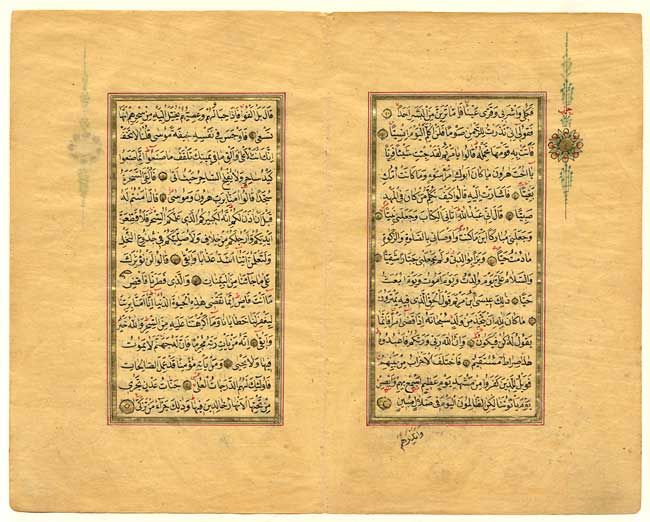 حزب
فَكُلِي وَاشْرَبِي وَقَرِّي عَيْنًا فَاِمَّا تَرَيِنَّ مِنَ الْبَشَرِ اَحَدًا
فَقُولِي اِنِّي نَذَرْتُ لِلرَّحْمٰنِ صَوْمًا فَلَنْ اُكَلِّمَ الْيَوْمَ اِنْسِيًّا
فَاَتَتْ بِهِ قَوْمَهَا تَحْمِلُهُ قَالُوا يَا مَرْيَمُ لَقَدْ جِئْتِ شَيْئًا فَرِيًّا
يَا اُخْتَ هٰرُونَ مَا كَانَ اَبُوكِ امْرَاَ سَوْءٍ وَمَا كَانَتْ اُمُّكِ
بَغِيًّا فَاَشَارَتْ اِلَيْهِ قَالُوا كَيْفَ نُكَلِّمُ مَنْ كَانَ فِي الْمَهْدِ
صَبِيًّا قَالَ اِنِّي عَبْدُ اللّٰهِ اٰتَانِيَ الْكِتَابَ وَجَعَلَنِي نَبِيًّا
وَجَعَلَنِي مُبَارَكًا اَيْنَ مَا كُنْتُ وَاَوْصَانِي بِالصَّلٰوةِ وَالزَّكٰوةِ
مَا دُمْتُ حَيًّا وَبَرًّا بِوَالِدَتِي وَلَمْ يَجْعَلْنِي جَبَّارًا شَقِيًّا
وَالسَّلَامُ عَلَيَّ يَوْمَ وُلِدْتُ وَيَوْمَ اَمُوتُ وَيَوْمَ اُبْعَثُ
حَيًّا ذٰلِكَ عِيسَى ابْنُ مَرْيَمَ قَوْلَ الْحَقِّ الَّذِي فِيهِ يَمْتَرُونَ
مَا كَانَ لِلّٰهِ اَنْ يَتَّخِذَ مِنْ وَلَدٍ سُبْحَانَهُ اِذَا قَضٰى اَمْرًا فَاِنَّمَا
يَقُولُ لَهُ كُنْ فَيَكُونُ وَاِنَّ اللّٰهَ رَبِّي وَرَبُّكُمْ فَاعْبُدُوهُ
هٰذَا صِرَاطٌ مُسْتَقِيمٌ فَاخْتَلَفَ الْاَحْزَابُ مِنْ بَيْنِهِمْ
فَوَيْلٌ لِلَّذِينَ كَفَرُوا مِنْ مَشْهَدِ يَوْمٍ عَظِيمٍ اَسْمِعْ بِهِمْ وَاَبْصِرْ
يَوْمَ يَاْتُونَنَا لٰكِنِ الظَّالِمُونَ الْيَوْمَ فِي ضَلَالٍ مُبِينٍ
وانذرهم
قَالَ بَلْ اَلْقُوا فَاِذَا حِبَالُهُمْ وَعِصِيُّهُمْ يُخَيَّلُ اِلَيْهِ مِنْ سِحْرِهِمْ اَنَّهَا
تَسْعٰى فَاَوْجَسَ فِي نَفْسِهِ خِيفَةً مُوسٰى قُلْنَا لَا تَخَفْ
اِنَّكَ اَنْتَ الْاَعْلٰى وَاَلْقِ مَا فِي يَمِينِكَ تَلْقَفْ مَا صَنَعُوا اِنَّمَا صَنَعُوا
كَيْدُ سَاحِرٍ وَلَا يُفْلِحُ السَّاحِرُ حَيْثُ اَتٰى فَاُلْقِيَ السَّحَرَةُ
سُجَّدًا قَالُوا اٰمَنَّا بِرَبِّ هٰرُونَ وَمُوسٰى قَالَ اٰمَنْتُمْ لَهُ
قَبْلَ اَنْ اٰذَنَ لَكُمْ اِنَّهُ لَكَبِيرُكُمُ الَّذِي عَلَّمَكُمُ السِّحْرَ فَلَاُقَطِّعَنَّ
اَيْدِيَكُمْ وَاَرْجُلَكُمْ مِنْ خِلَافٍ وَلَاُصَلِّبَنَّكُمْ فِي جُذُوعِ النَّخْلِ
وَلَتَعْلَمُنَّ اَيُّنَا اَشَدُّ عَذَابًا وَاَبْقٰى قَالُوا لَنْ نُؤْثِرَكَ
عَلٰى مَا جَاءَنَا مِنَ الْبَيِّنَاتِ وَالَّذِي فَطَرَنَا فَاقْضِ
مَا اَنْتَ قَاضٍ اِنَّمَا تَقْضِي هٰذِهِ الْحَيٰوةَ الدُّنْيَا اِنَّا اٰمَنَّا بِرَبِّنَا
لِيَغْفِرَ لَنَا خَطَايَانَا وَمَا اَكْرَهْتَنَا عَلَيْهِ مِنَ السِّحْرِ وَاللّٰهُ خَيْرٌ
وَاَبْقٰى اِنَّهُ مَنْ يَاْتِ رَبَّهُ مُجْرِمًا فَاِنَّ لَهُ جَهَنَّمَ لَا يَمُوتُ
فِيهَا وَلَا يَحْيٰى وَمَنْ يَاْتِهِ مُؤْمِنًا قَدْ عَمِلَ الصَّالِحَاتِ
فَاُولٰئِكَ لَهُمُ الدَّرَجَاتُ الْعُلٰى جَنَّاتُ عَدْنٍ تَجْرِي
مِنْ تَحْتِهَا الْاَنْهَارُ خَالِدِينَ فِيهَا وَذٰلِكَ جَزَاءُ مَنْ تَزَكّٰى